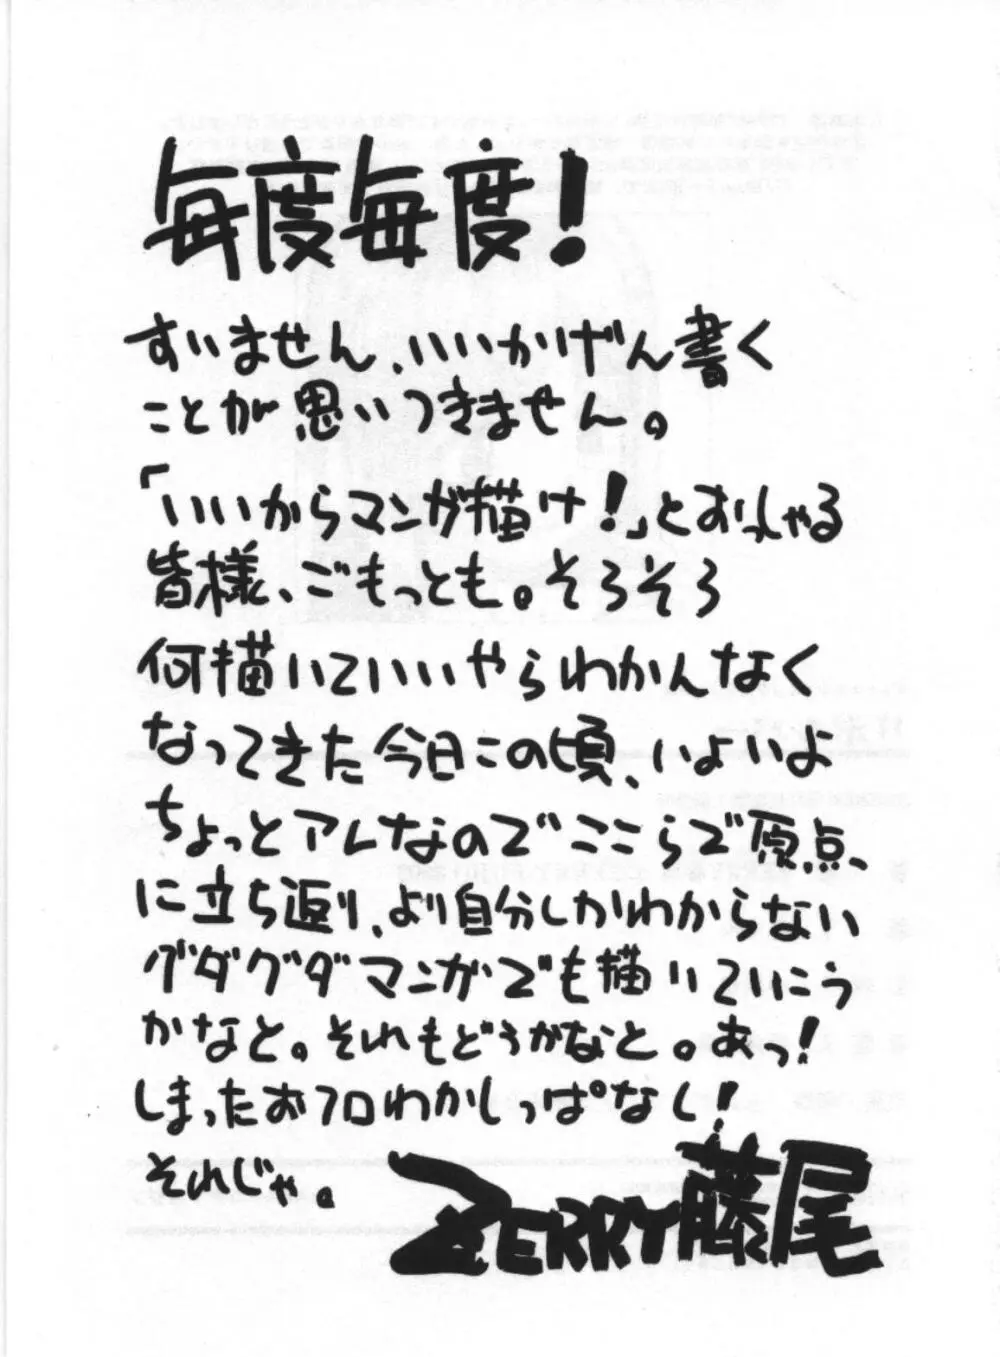 毎度毎度!
すいません、いいかげん書く
ことが思いつきません。
「いいからマンガ描け!」とおっしゃる
皆様、ごもっとも。そろそろ
何描いていいやらわかんなく
なってきた今日この頃、いよいよ
ちょっとアレなのでここらで原点、
に立ち返り、より自分しかわからない
グダグダマンガでも描いていこう
かなと。それもどうかなと。あっ!
しまったおフロわかしっぱなし!
それじゃ。
ZERRY藤尾